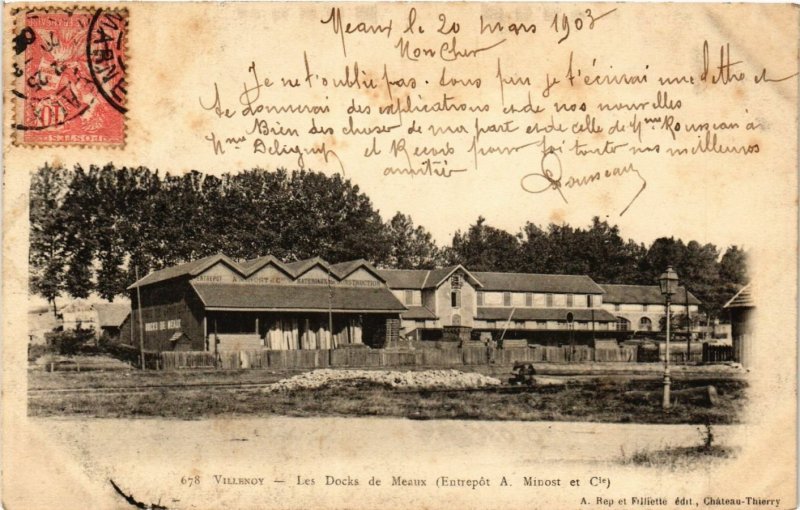 Meaux le 20 mars 1903
Mon Cher
Je ne t'oublie pas. sous peu je t'écrirai une lettre et
te donnerai des explications et de nos nouvelles
Bien des choses de ma part et de celle de Mme Rousseau à
Mme Deligny et Reçois pour toi toutes nos meilleures
amitiés
Rousseau
ENTREPOT
MATERIAUX
A. MINOST & Cie
CONSTRUCTION
DOCKS DE MEAUX
POSTES
10
678 VILLENOY — Les Docks de Meaux (Entrepôt A. Minost et Cie)
A. Rep et Filliette édit., Château-Thierry